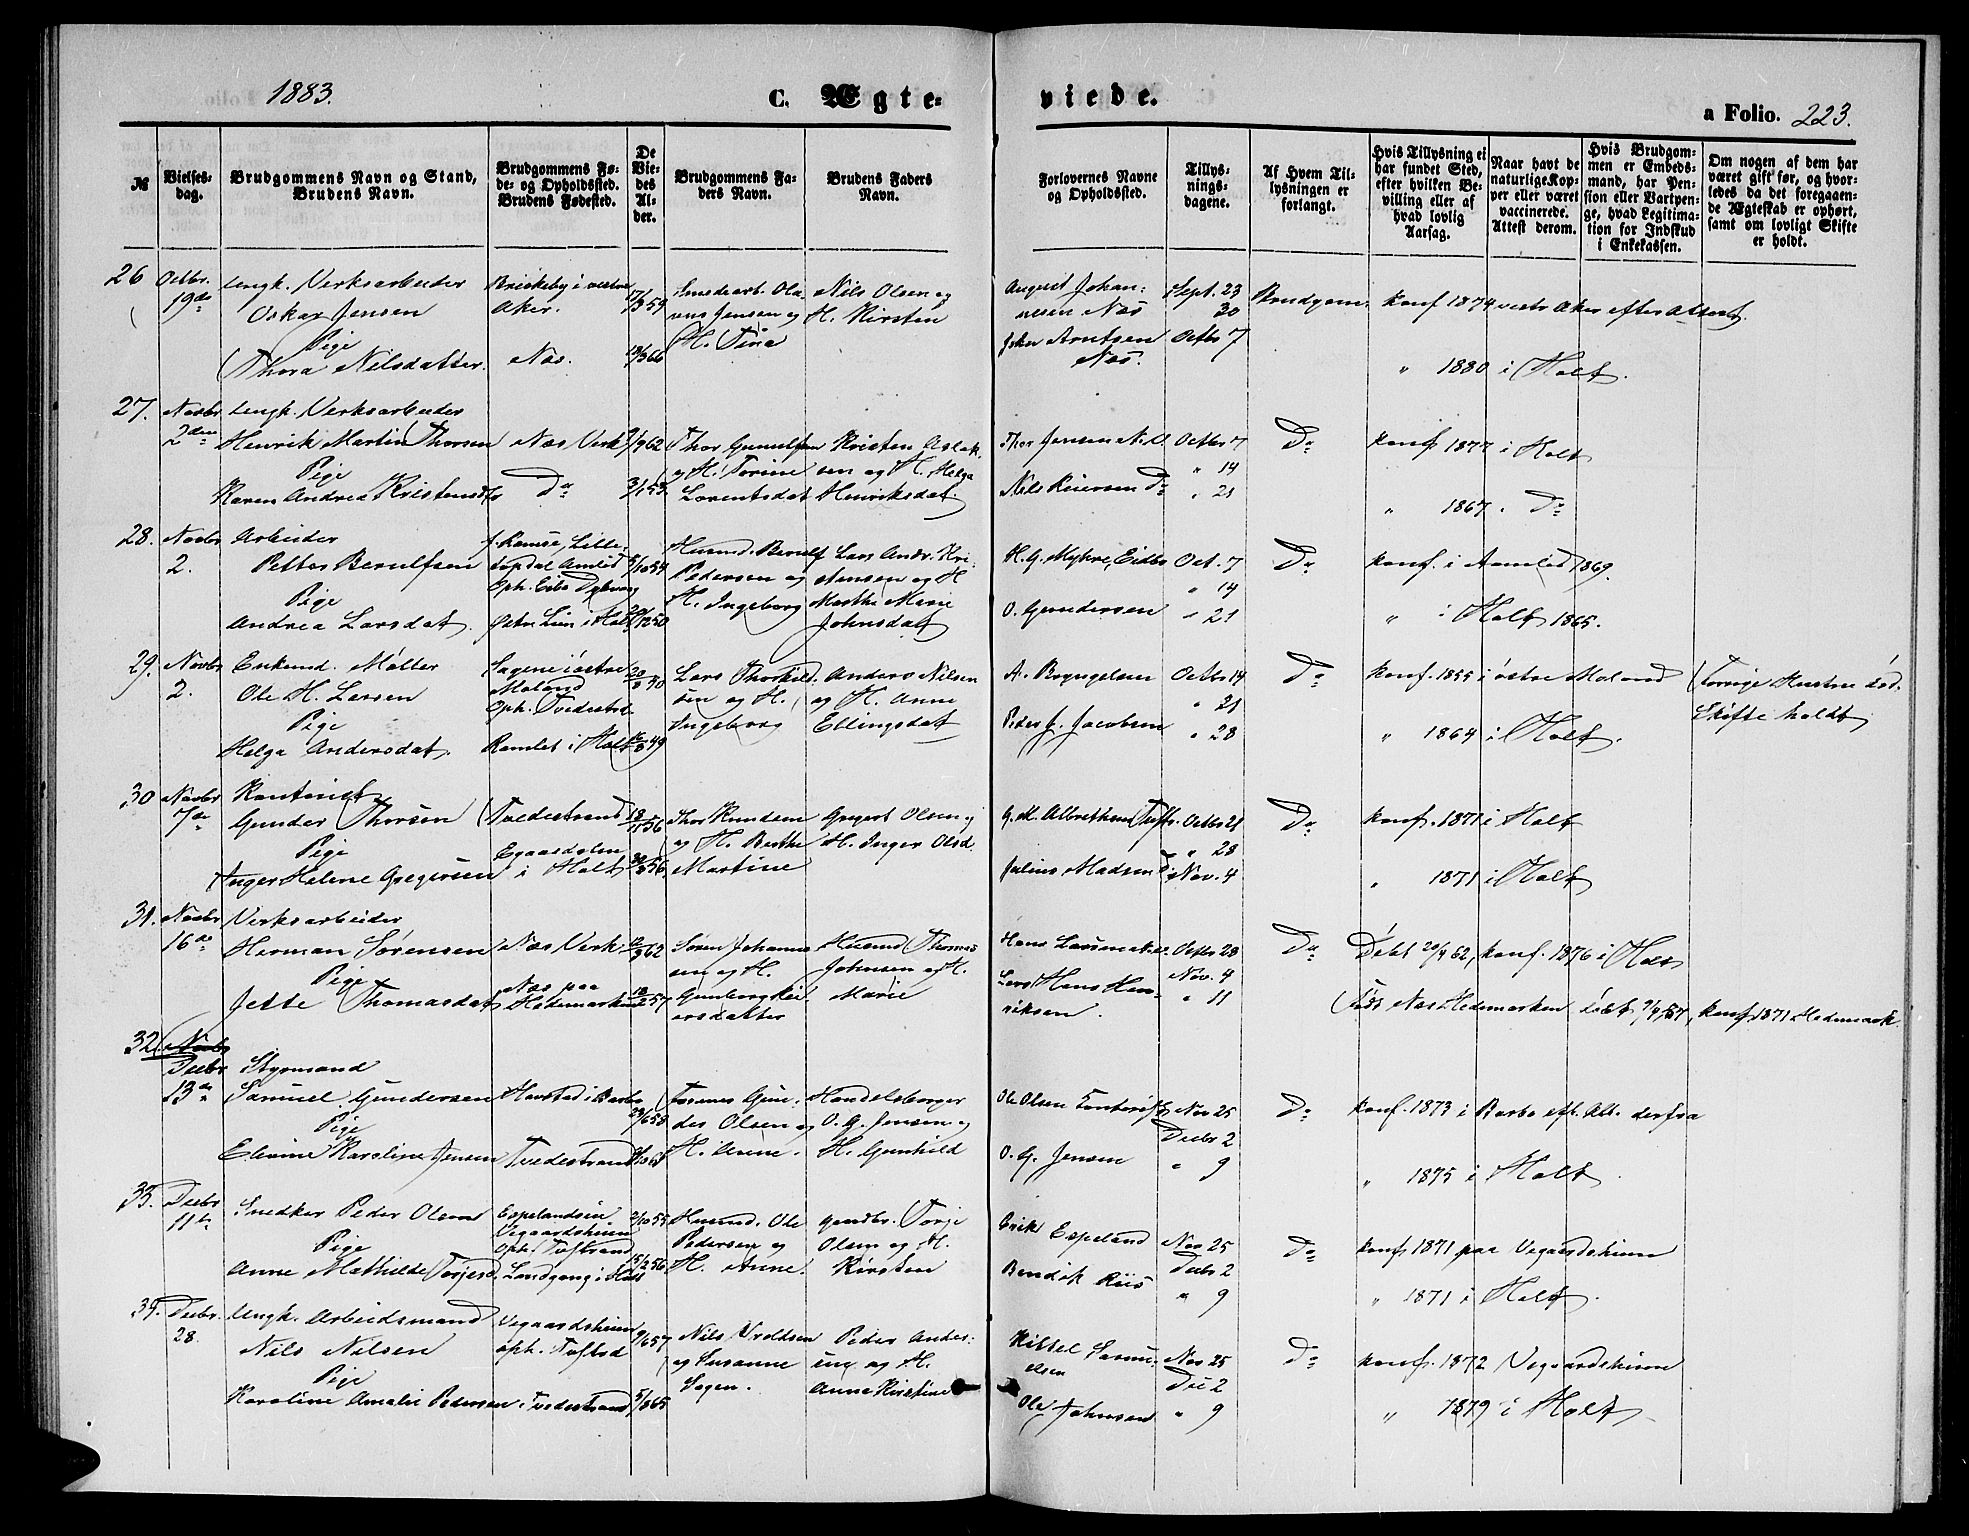 1883.
C. Ægte-
viede.
a Folio. 223.
№
Vielses-
dag.
Brudgommens Navn og Stand,
Brudens Navn.
Brudgommens Fø-
de- og Opholdssted.
Brudens Fødested.
De
Vie-
des
Al-
der.
Brudgommens Fa-
ders Navn.
Brudens Faders
Navn.
Forlovernes Navne
og Opholdssted.
Tillys-
nings-
dagene.
Af Hvem Til-
lysningen er
forlangt.
Hvis Tillysning ei
har fundet Sted,
efter hvilken Be-
villing eller af
hvad lovlig
Aarsag.
Naar havt de
naturlige Kop-
per eller været
vaccinerede.
Attest derom.
Hvis Brudgom-
men er Embeds-
mand, har Pen-
sion eller Vartpen-
ge, hvad Legitima-
tion for Indskud
i Enkekassen.
Om nogen af dem har
været gift før, og hvor-
ledes da det foregaaen-
de Ægteskab er ophørt,
samt om lovligt Skifte
er holdt.
26
Octbr.
19de
Ungk. Verksarbeider
Oskar Jensen
Pige
Thora Nilsdatter.
Briskeby i vestre
Aker.
Næs.
17/3 59
18/3 66
Smedearb. Ola-
vus Jensen og
H. Tina
Nils Olsen og
H. Kirsten
August Johan-
nesen Næs
John Arntsen
Næs.
Sept. 23
30
Octbr 7
Brudgom.
konf 1874 vestr Aker efter Attest.
" 1880 i Holt.
27.
Novbr
2den
Ungk. Verksarbeider
Henrik Martin Thorsen
Pige
Karen Andrea Kristensd
Næs Verk
Do
/9 62
3/1 53.
Thor Gunulfsen
og H. Torine
Lorentsdat
Kristen Aslak-
sen og H. Helga
Henriksdat.
Thor Jensen N.V.
Nils Reiersen Do
Octbr 7
" 14
" 21
Do
konf 1877 i Holt
" 1867 " Do
28.
Novbr
2.
Arbeider
Petter Berulfsen
Pige
Andrea Larsdat.
f. Ramse, Lille
Topdal Amlid
Oph. Eibo Dybvaag
Østre Lien i Holt
/10 54
/12 50
Husmd. Berulf
Pedersen og
H. Ingeborg
Lars Andr. Kri-
stensen og H
Marthe Marie
Johnsdat
H. G. Myhre, Eidbo
O. Gundersen
Oct. 7
" 14
" 21
Do
konf. i Aamlid 1869.
" i Holt 1865.
29.
Novbr
2.
Enkemd. Møller
Ole H. Larsen
Pige
Helga Andersdat.
Sagene i østre
Moland
Oph. Tvedestrd
Ramlet i Holt
20/8 40
/8 49
Lars Thorkild-
sen og H.
Ingeborg
Anders Nilsen
og H. Anne
Ellingsdat
Peder J. Jacobsen
Octbr 14
" 21
" 28
Do
konf. 1855 i østre Moland
" 1864 i Holt.
Forrige Hustru død.
Skifte holdt
30
Novbr
7de
Kontorist
Gunder Thorsen
Pige
Inger Helene Gregersen
Tvedestrand
Egaardslen
i Holt
18/11 56
30/8 56,
Thor Knudsen
og H. Berthe
Martine
Gregert Olsen og
H. Inger Olsd.
G. M. Albrethsen Tvstr.
Julius Madsen Do
Octbr 21
" 28
Nov. 4
Do
konf. 1871 i Holt
" 1871 i Holt
31.
Novbr
16de
Verksarbeider
Herman Sørensen
Pige
Jette Thomasdat
Næs Verk
Næs paa
Hedemarken
/3 62
18/2 57
Søren Johanne-
sen og H.
Gunborg Rei-
ersdatter
Husmd Thomas
Johnsen og H.
Marie
Hans Larsen N.V.
Lars Hans Hen-
riksen.
Octbr 28
Nov. 4
" 11
Do
Døbt 20/4 62, konf. 1876 i Holt
Født Næs Hedemarken døbt 9/4 57, konf 1871 Hedemark
32.
Novbr
Decbr
13de
Styrmand
Samuel Gundersen
Pige
Elevine Karoline Jensen
Havstad i Barbo
Tvedestrand
23/6 58
/10 61
Tarones Gun-
der Olsen og
H. Anne.
Handelsborger
O. G. Jensen og
H. Gunhild
Ole Olsen Kontorist
O. G. Jensen
Nov 25
Decbr 2
" 9
Do
konf. 1873 i Barbo eft. Att. derfra
" 1875 i Holt.
33.
Decbr
11te
Snedker Peder Olsen
Pige
Anne Mathilde Torjesd.
Espelandseie
Vegaardsheien
oph. Tvstrand
Landgang i Holt
2/10 55
15/2 56
Husmd. Ole
Pedersen og
H. Anne.
gaardbr. Torje
Olsen og H.
Kirsten
Erik Espeland
Bendik Riis
Nov 25
Decbr 2
" 9
Do
konf 1871 paa Vegaardsheien
" 1871 i Holt.
34.
Decbr.
28.
Ungk. Arbeidsmand
Nils Nilsen
Pige
Karoline Amalie Pedersen.
Vegaardsheien
oph. Tvstrd
Tvedestrand
9/6 57
5/3 65
Nils Uvoldsen
og Susanne
Sagen.
Peder Ander-
sen og H.
Anne Kirstine
Kittel Samu-
elsen
Ole Johnsen
Nov 25
Dec 2
" 9
Do
konf. 1872 Vegaardsheien
" 1879 i Holt